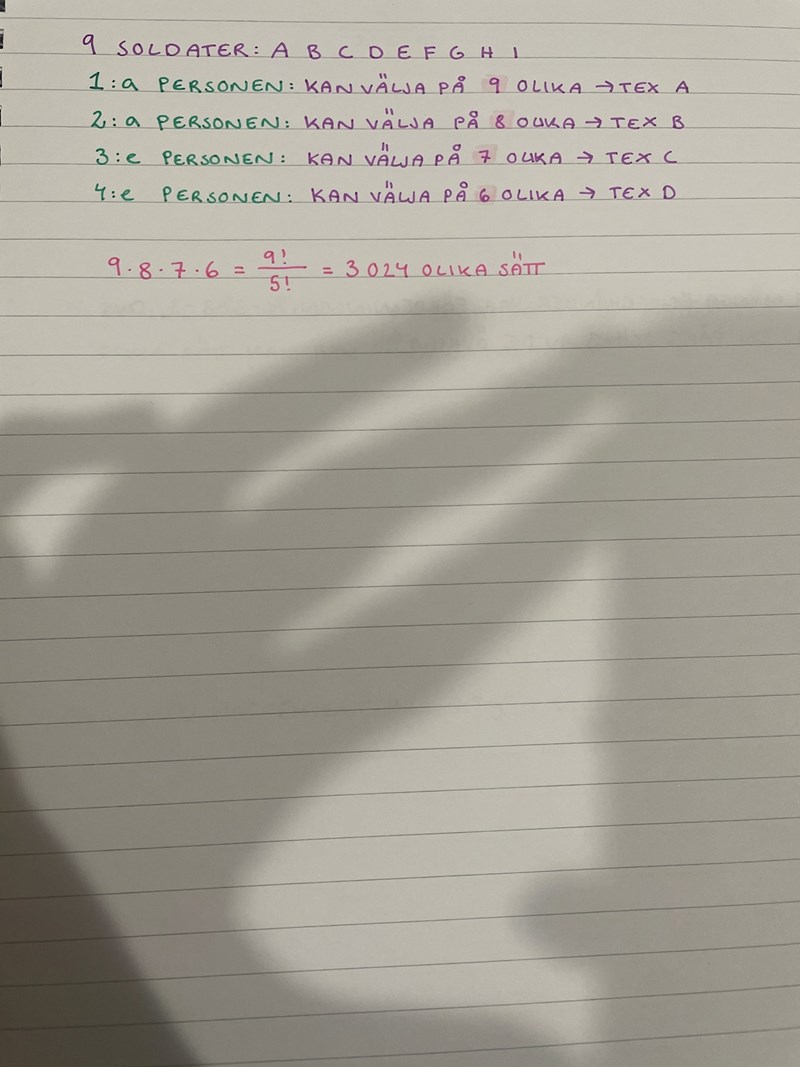 9 SOLDATER: A B C D E F G H I
1:a PERSONEN: KAN VÄLJA PÅ 9 OLIKA → TEX A
2:a PERSONEN: KAN VÄLJA PÅ 8 OLIKA → TEX B
3:e PERSONEN: KAN VÄLJA PÅ 7 OLIKA → TEX C
4:e PERSONEN: KAN VÄLJA PÅ 6 OLIKA → TEX D
9·8·7·6 = 9!/5! = 3 024 OLIKA SÄTT